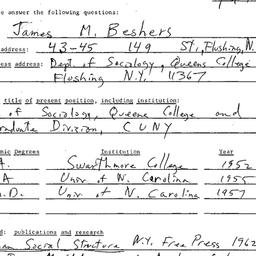 e answer the following questions:
James M. Beshers
address: 43-45 149 St., Flushing, N.
ess address: Dept. of Sociology, Queens College
Flushing N.Y. 11367
title of present position, including institution:
of Sociology, Queens College and
raduate Division, CUNY
mic Degrees Institution Year
A. Swarthmore College 1952
A Univ of N. Carolina 1955
.D. Univ of N. Carolina 1957
d: publications and research
an Social Structure N.Y. Free Press 1962